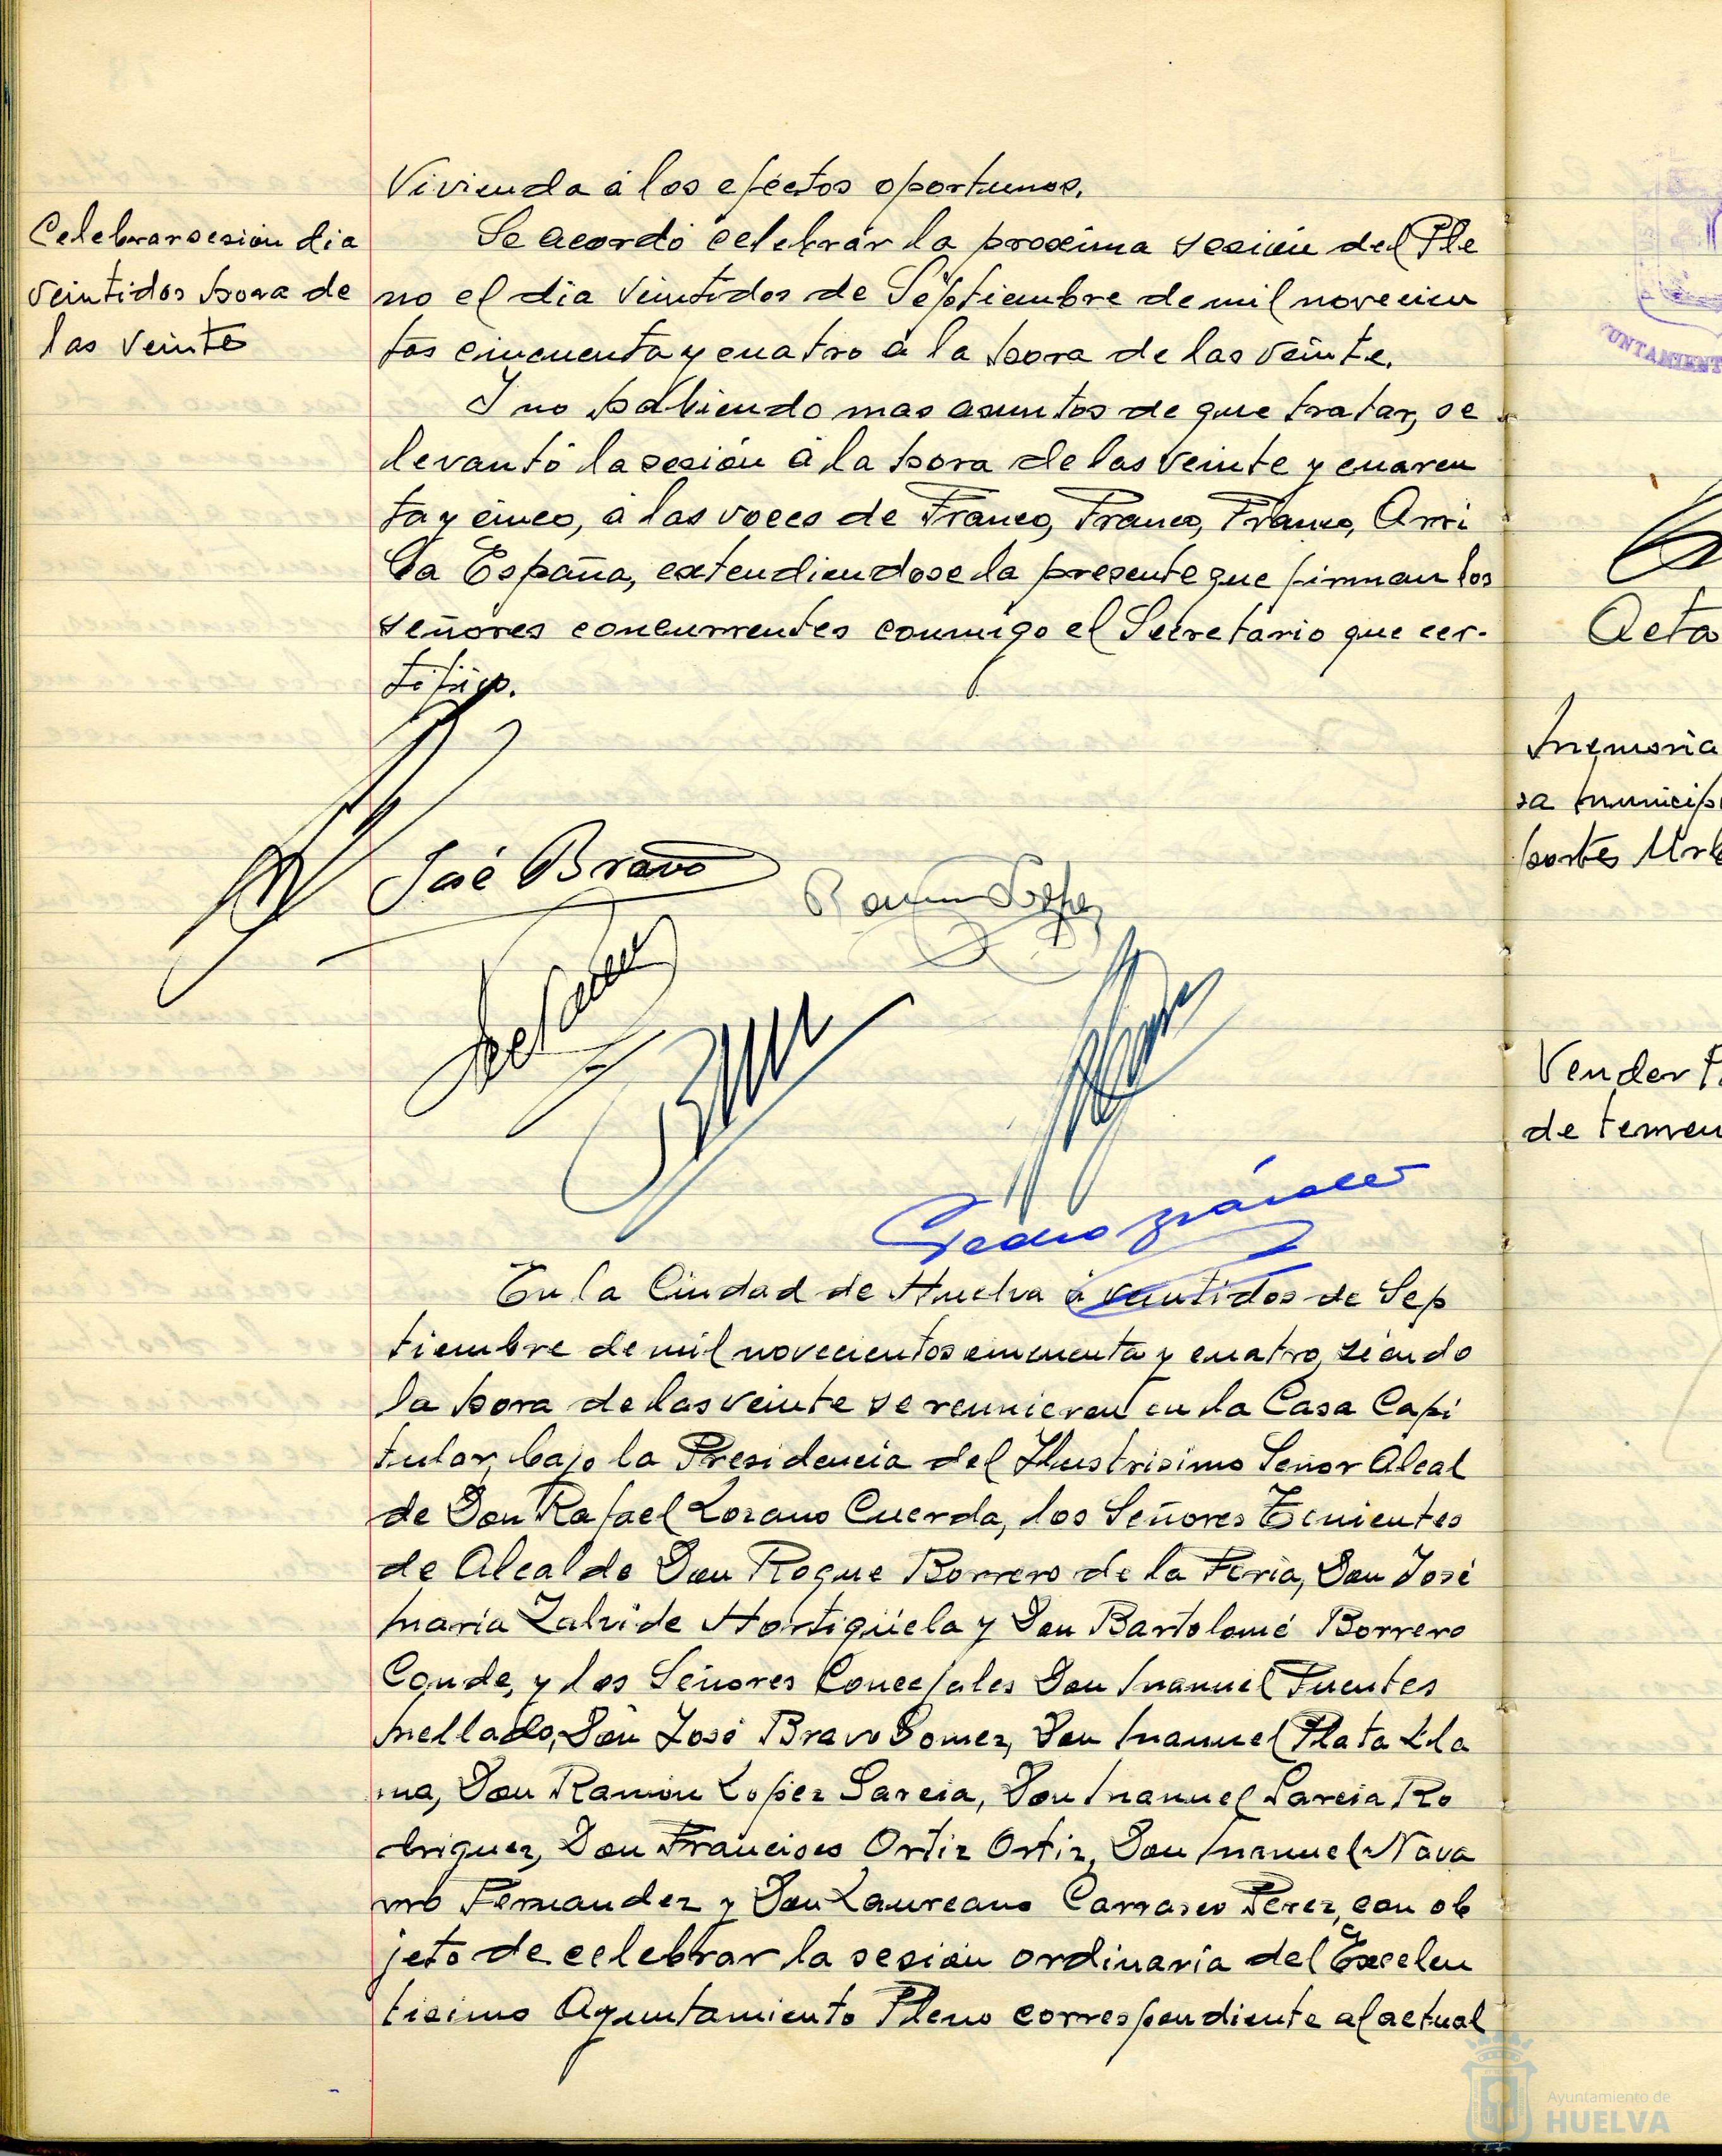 Vivienda á los eféctos oportunos.
Celebrar sesión dia
veintidos hora de
las veinte
Se acordó celebrar la proxima sesión del Ple
no el dia veintidos de Septiembre de mil novecien
tos cincuenta y cuatro á la hora de las veinte.
Y no habiendo mas asuntos de que tratar, se
levantó la sesión á la hora de las veinte y cuaren
ta y cinco, á las voces de Franco, Franco, Franco, Arri
ba España, extendiendose la presente que firman los
señores concurrentes conmigo el Secretario que cer-
tifico.
José Bravo
Ramon Lopez
Pedro
En la Ciudad de Huelva á veintidos de Sep
tiembre de mil novecientos cincuenta y cuatro, siendo
la hora de las veinte se reunieron en la Casa Capi
tular, bajo la Presidencia del Ilustrisimo Señor Alcal
de Don Rafael Lozano Cuerda, los Señores Tenientes
de Alcalde Don Roque Borrero de la Feria, Don José
Maria Zalvide Hortigüela y Don Bartolomé Borrero
Conde, y los Señores Concejales Don Manuel Fuentes
Mellado, Don José Bravo Gomez, Don Manuel Plata Lla
ma, Don Ramón Lopez Garcia, Don Manuel Garcia Ro
driguez, Don Francisco Ortiz Ortiz, Don Manuel Nava
rro Fernandez y Don Laureano Carrasco Perez, con ob
jeto de celebrar la sesión ordinaria del Excelen
tisimo Ayuntamiento Pleno correspondiente al actual
UNTAMIENT
Acta
Memoria
sa municip
portes Urb
Vender P
de terren
Ayuntamiento de
HUELVA